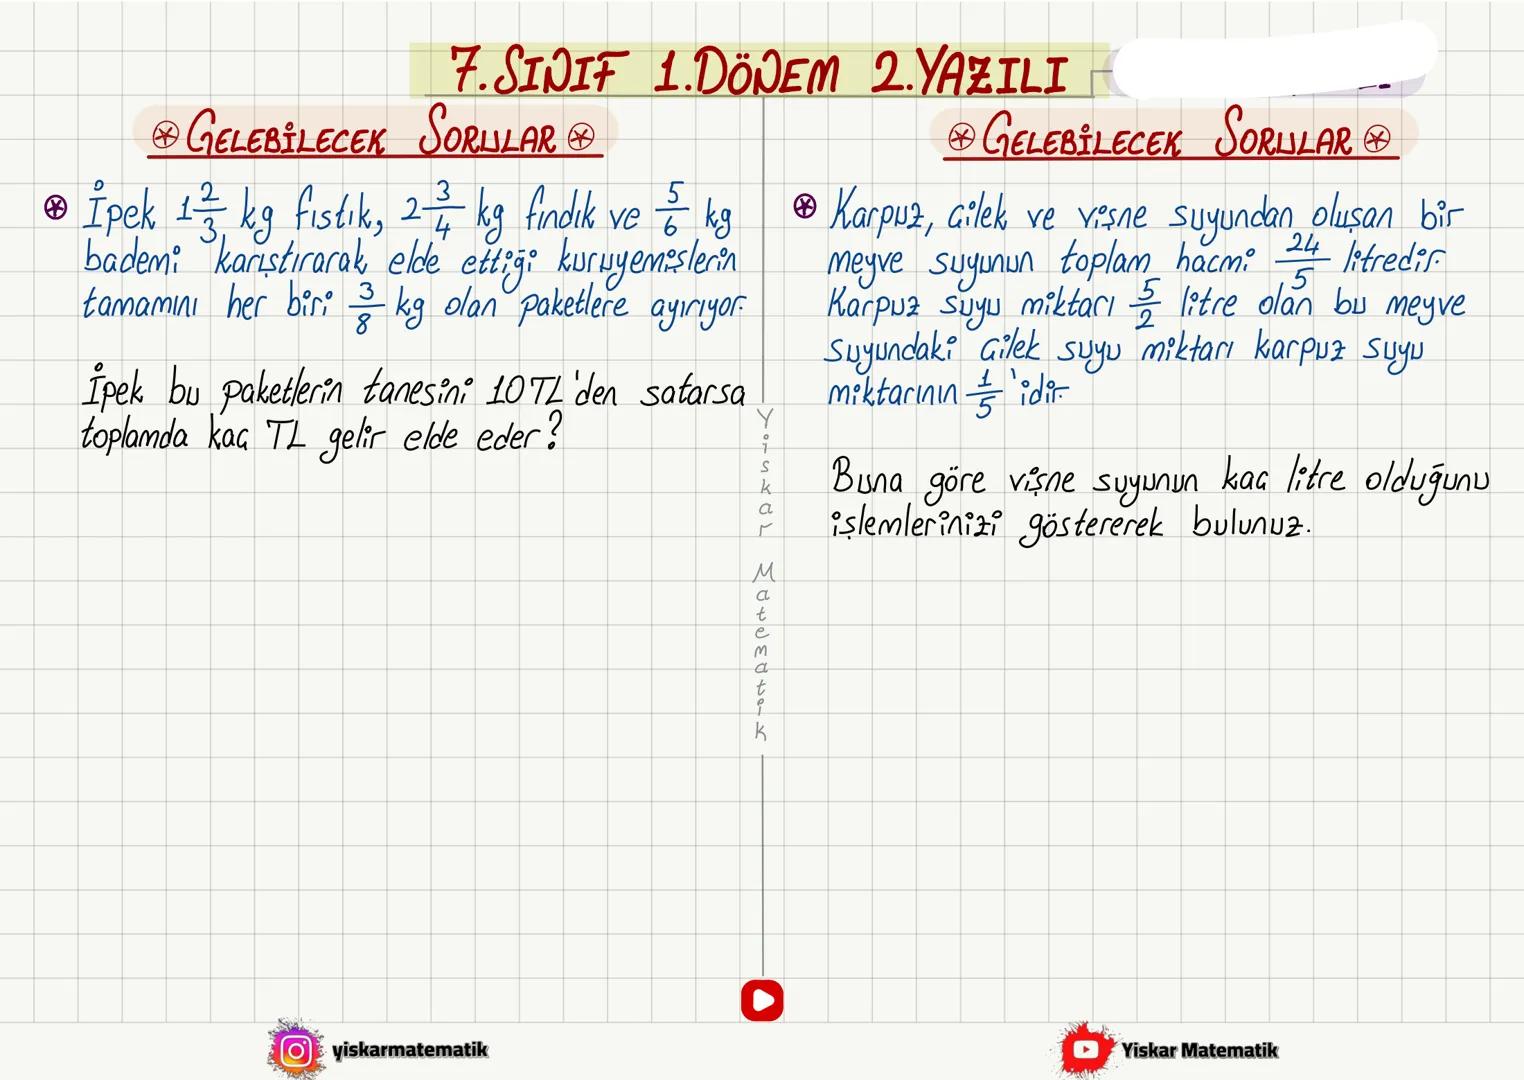 7.SINIF 1.DÖNEM 2.YAZILI
GELEBİLECEK SORULAR
İpek 1 2/3 kg fıstık, 2 3/4 kg fındık ve 5/6 kg
bademi karıştırarak elde ettiği kuruyemişlerin
tamamını her biri 3/8 kg olan paketlere ayırıyor.
İpek bu paketlerin tanesini 10 TL'den satarsa
toplamda kaç TL gelir elde eder?
Yiskar Matematik
GELEBİLECEK SORULAR
Karpuz, çilek ve vişne suyundan oluşan bir
meyve suyunun toplam hacmi 24/5 litredir.
Karpuz suyu miktarı 5/2 litre olan bu meyve
suyundaki çilek suyu miktarı karpuz suyu
miktarının 1/5 'idir.
Buna göre vişne suyunun kaç litre olduğunu
işlemlerinizi göstererek bulunuz.
yiskarmatematik
Yiskar Matematik